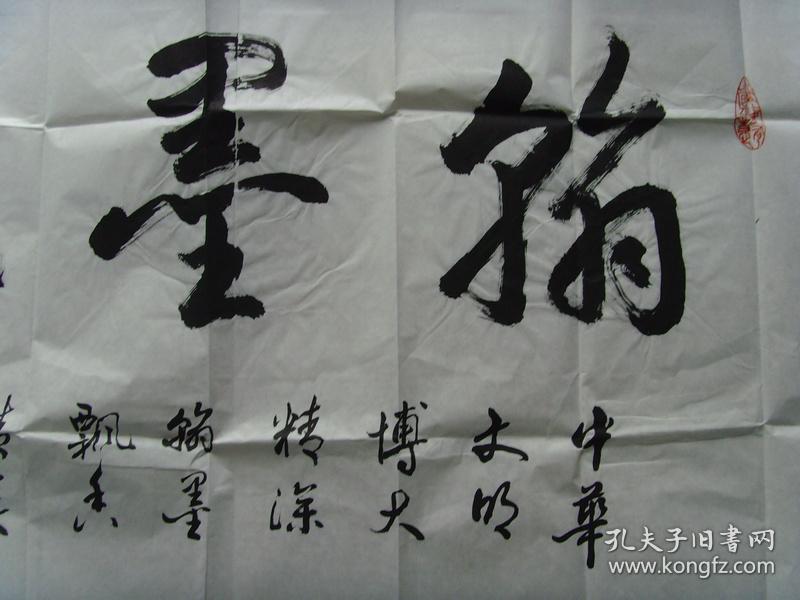 翰墨
中華
文明
博大
精深
翰墨
飘香
孔夫子旧書网
www.kongfz.com